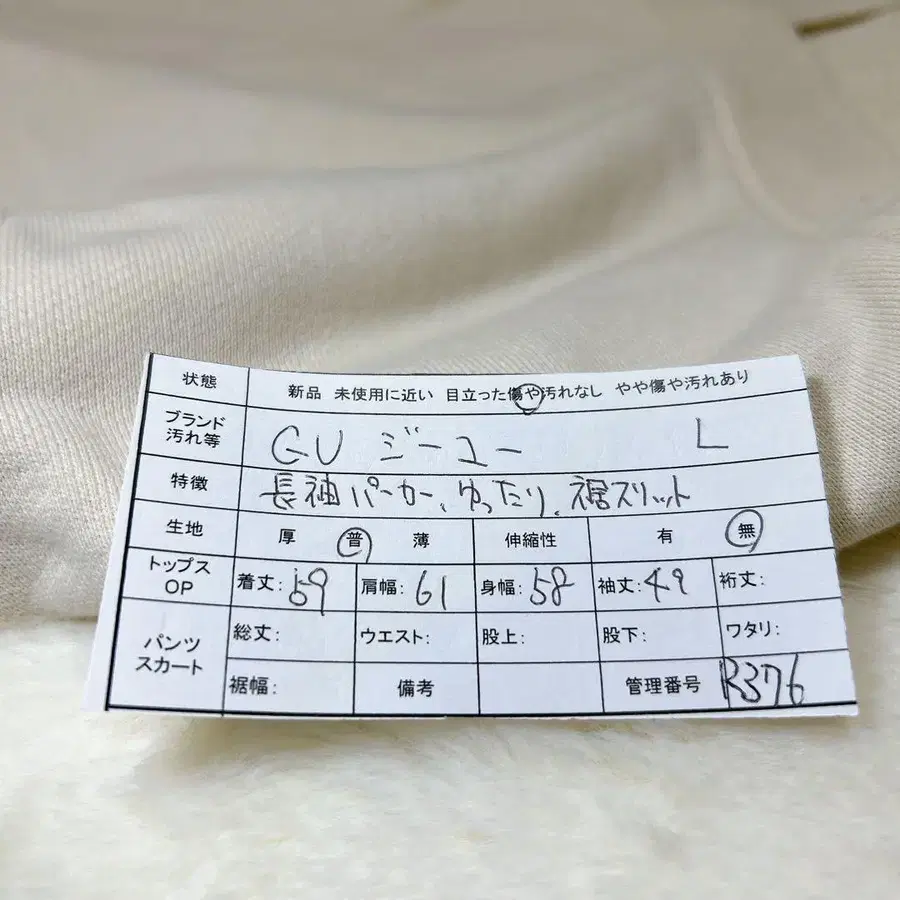 状態 新品 未使用に近い 目立った傷や汚れなし やや傷や汚れあり
ブランド 汚れ等 GU ジーユー L
特徴 長袖パーカー、ゆったり、裾スリット
生地 厚 普 薄 伸縮性 有 無
トップス OP 着丈:59 肩幅:61 身幅:58 袖丈:49 裄丈:
パンツ スカート 総丈: ウエスト: 股上: 股下: ワタリ:
裾幅: 備考 管理番号 R376